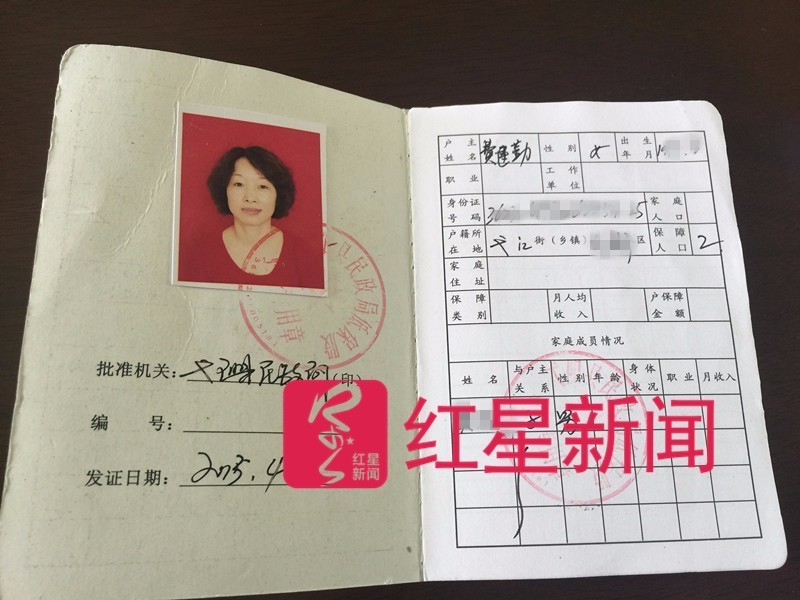 批准机关:
民政局(印)
编 号:
发证日期: 2015.4
县民政局低保股
用章
红星新闻
红星新闻
户主姓名 黄建勤 性别 女 出生年月
职业 工作单位
身份证号码 36 5 家庭人口
户籍所在地 街(乡镇) 区 保障人口 2
家庭住址
保障类别 月人均收入 户保障金额
家庭成员情况
姓名 与户主关系 性别 年龄 身体状况 职业 月收入
子 男